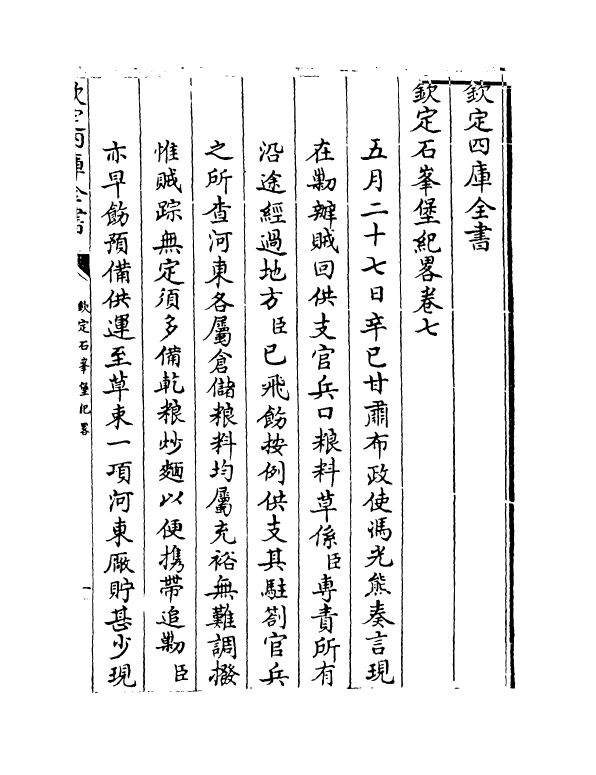 欽定四庫全書
欽定石峯堡紀畧卷七
五月二十七日辛巳甘肅布政使馮光熊奏言現
在勦辦賊回供支官兵口粮料草係臣專責所有
沿途經過地方臣已飛飭按例供支其駐劄官兵
之所查河東各屬倉儲粮料均屬充裕無難調撥
惟賊踪無定須多備乾粮炒麵以便擕帶追勦臣
亦早飭預備供運至草束一項河東厰貯甚少現
欽定四庫全書
欽定石峯堡紀畧
一